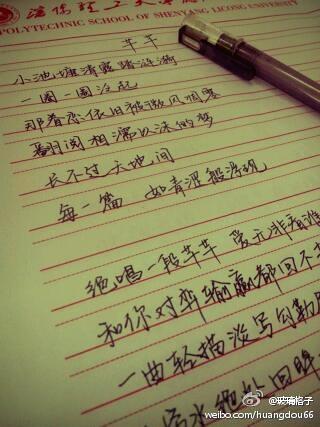 沈阳理工大学
POLYTECHNIC SCHOOL OF SHENYANG LIGONG UNIVERSITY
芊芊
小池塘清 涟漪
一圈一圈泛起
那眷恋依旧被微风调
翻阅相濡以沫的梦
长不过天地间
每一篇 如青涩般浮现
绝唱一段芊芊 爱无非看谁
和你对弈输赢都回不
一曲轻描淡写勾勒
流水绝处回眸
@玻璃格子
weibo.com/huangdou66